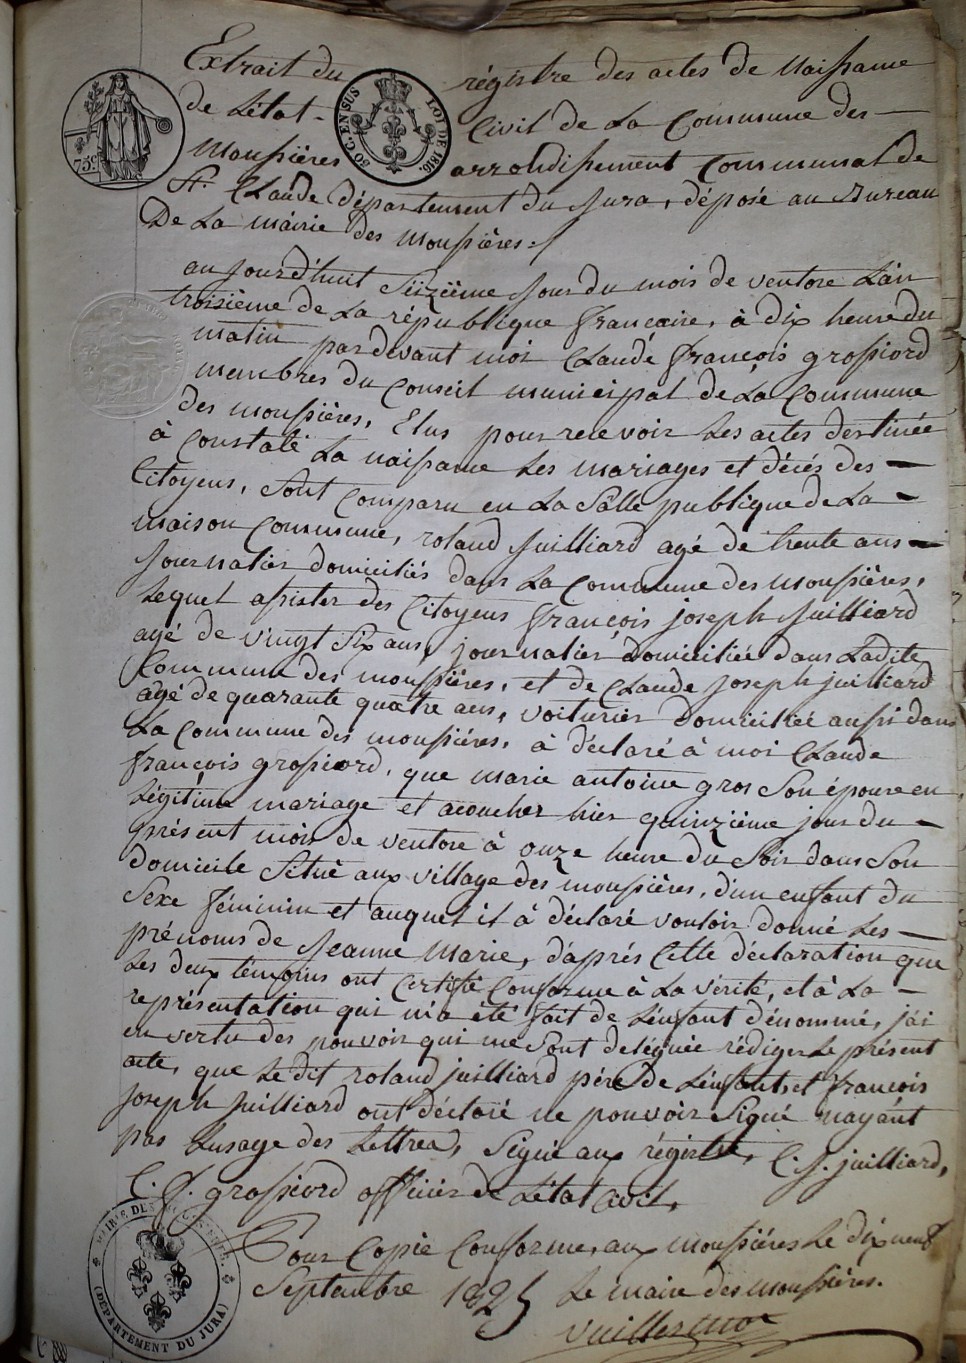 Extrait du régistre des actes de Naissance
de L'état - Civil de La Commune des -
Moussières arrondissement Communal de
St. Claude département du Jura, déposé au Bureau
De La mairie des moussières./
au jourd'huit Seizième Jour du mois de ventose L'an
troisième de La république française, à dix heure du
matin par devant moi Claude françois grossiord
membres du Conseil municipal de La Commune
des moussières, Elus pour recevoir Les actes destinée
à Constaté La naissance Les mariages et décés des -
Citoyens, Sont Comparu en La Salle publique de La -
maison Commune, roland Juilliard agé de trente ans -
Journalier domiciliés dans La Commune des moussières,
Lequel assister des Citoyens françois joseph Juilliard
agé de vingt Six ans, journalier Domiciliée dans Ladite
Commune des moussières, et de Claude Joseph juilliard
agé de quarante quatre ans, voiturier domiciliée aussi dans
La Commune des moussières, à déclaré à moi Claude
françois grossiord, que marie antoine gros Son épouse en
Légitime mariage et acoucher hier quinzième jour du -
présent mois de ventose à onze heure du Soir dans Son
domicile Situé aux village des moussières, d'un enfant du
Sexe féminin et auquel il à déclaré vouloir donné Les -
prénoms de Jeanne Marie, d'aprés Cette déclaration que
Les deux témoins ont Certifié Conforme à La vérité, et à La -
représentation qui m'a été fait de L'enfant dénommé, j'ai
en vertu des pouvoir qui me Sont deléguée rédiger Le présent
acte, que Le dit roland juilliard pére de L'enfant, et françois
Joseph Juilliard ont déclaré ne pouvoir Signé nayant
pas Lusage des Lettres, Signé aux régistre, C. J. juilliard,
C. f. grossiord officier de L'état Civil,
Pour Copie Conforme, aux moussières Le dix neuf
Septembre 1825 Le maire des moussières.
Vuillermoz
75c.
50 C. EN SUS
LOI DE 1816.
MAIRIE DES
(DÉPARTEMENT DU JURA)